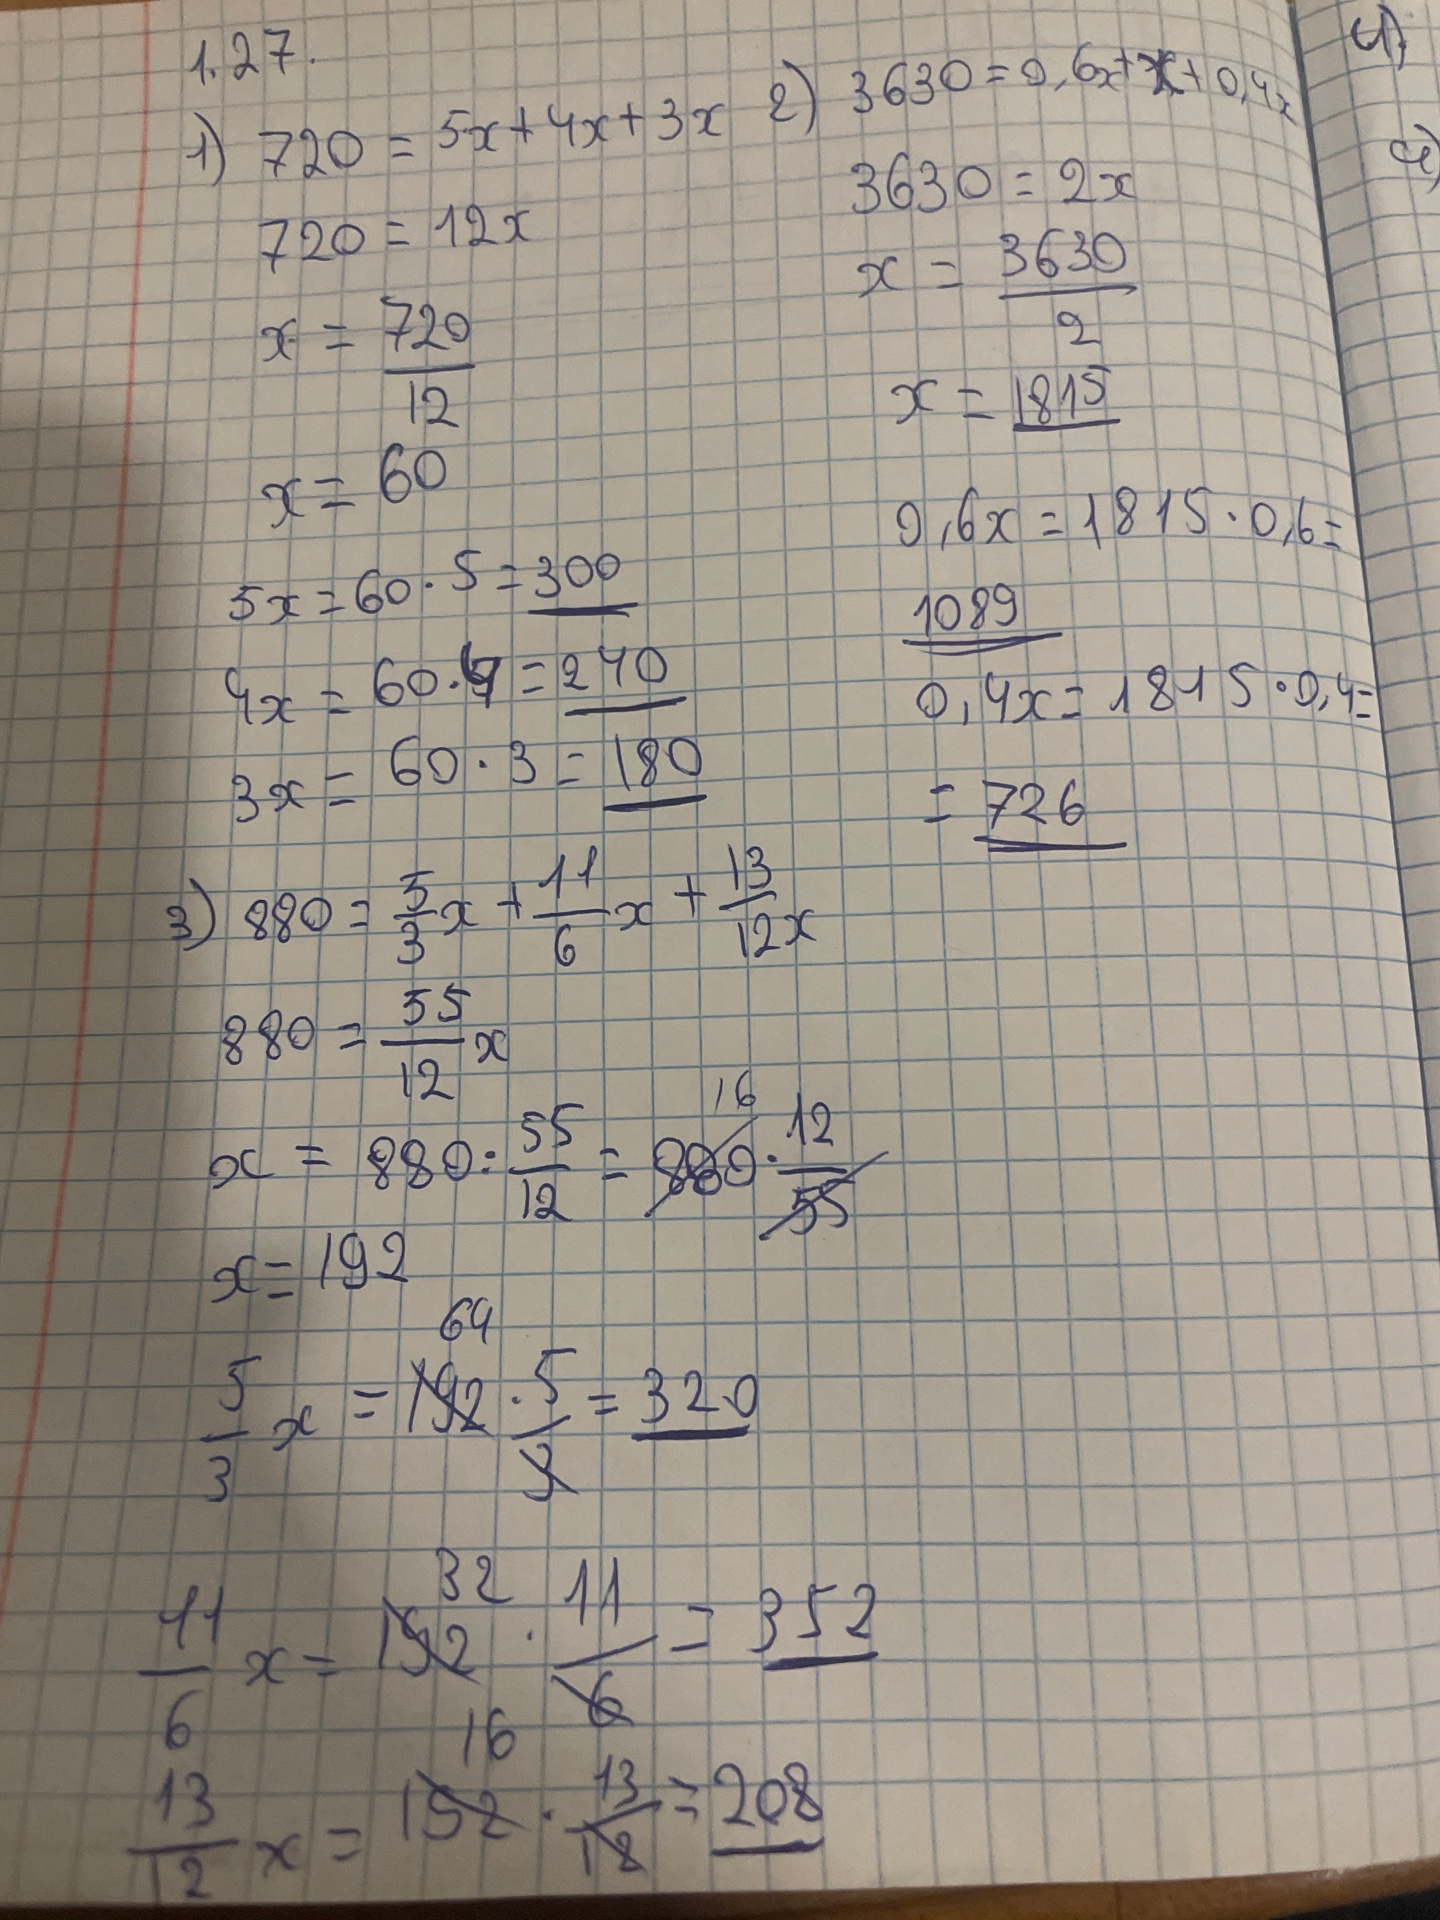 1.27.
1) 720 = 5x + 4x + 3x
720 = 12x
x = 720/12
x = 60
5x = 60 · 5 = 300
4x = 60 · 4 = 240
3x = 60 · 3 = 180
2) 3630 = 0,6x + x + 0,4x
3630 = 2x
x = 3630/2
x = 1815
0,6x = 1815 · 0,6 =
1089
0,4x = 1815 · 0,4 =
= 726
3) 880 = 5/3 x + 11/6 x + 13/12 x
880 = 55/12 x
16
x = 880 : 55/12 = 880 · 12/55
x = 192
64
5/3 x = 192 · 5/3 = 320
32
11/6 x = 192 · 11/6 = 352
16
13/12 x = 192 · 13/12 = 208